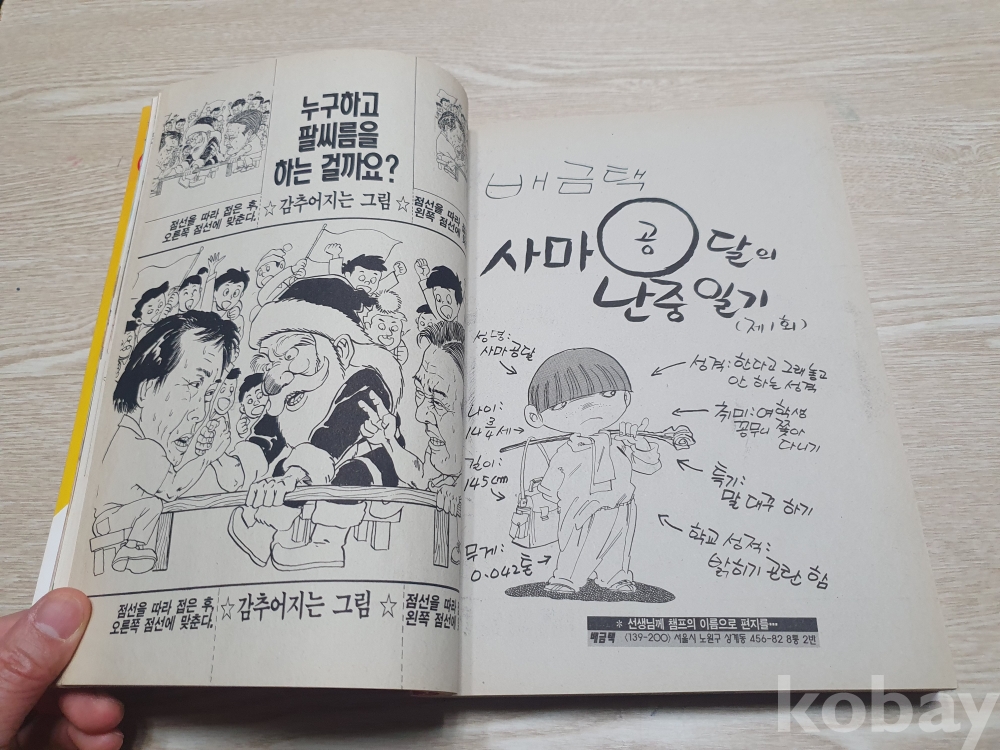 누구하고
팔씨름을
하는 걸까요?
점선을 따라 접은 후,
오른쪽 점선에 맞춘다.
☆ 감추어지는 그림 ☆
점선을 따라
왼쪽 점선에
점선을 따라 접은 후,
오른쪽 점선에 맞춘다.
☆ 감추어지는 그림 ☆
점선을 따라
왼쪽 점선에
배금택
사마 공 달의
난중일기
(제1회)
성명:
사마공달
나이:
14 세
길이:
145cm
무게:
0.042톤
성격: 한다고 그래놓고
안 하는 성격
취미: 여학생
꽁무니 쫓아
다니기
특기:
말 대꾸 하기
학교 성적:
밝히기 곤란 함
* 선생님께 챔프의 이름으로 편지를…
배금택 (139-200) 서울시 노원구 상계동 456-82 8통 2반
kobay